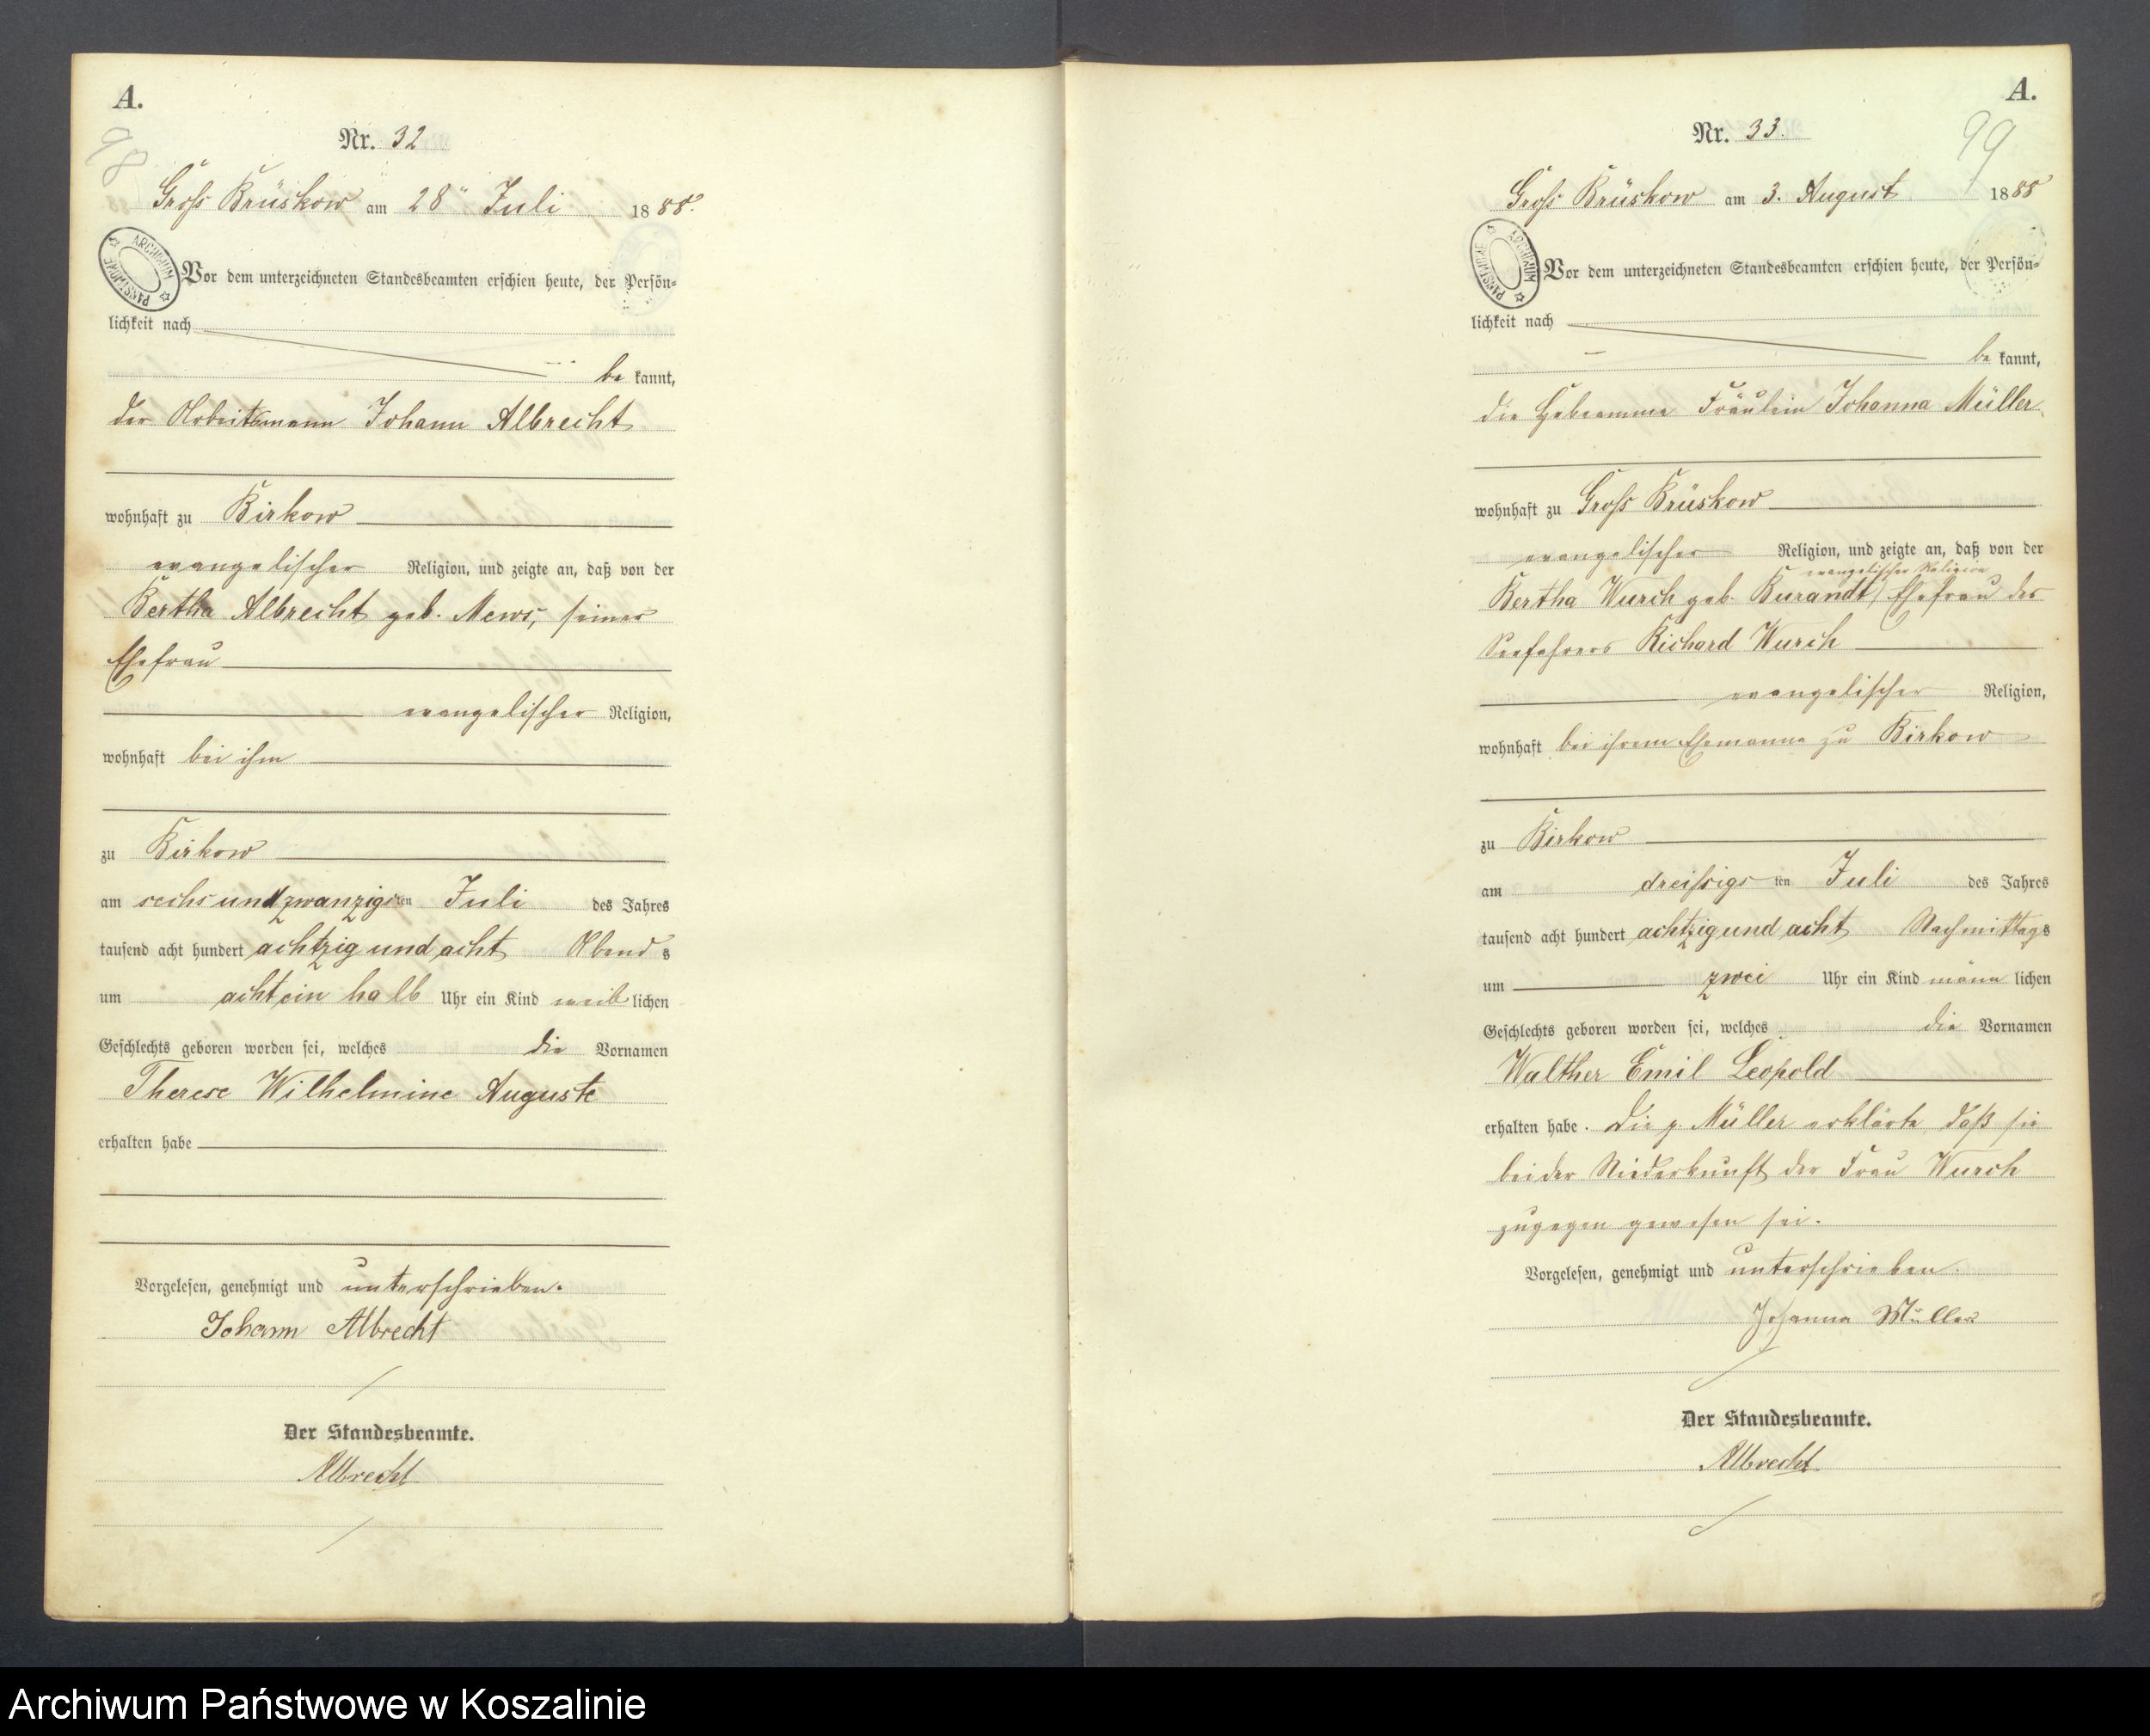 A.
98
Nr. 32
Groß Brüskow am 28ten Juli 1888.
ARCHIWUM PAŃSTWOWE
Vor dem unterzeichneten Standesbeamten erschien heute, der Persön-
lichkeit nach
be kannt,
der Arbeitsmann Johann Albrecht
wohnhaft zu Birkow
evangelischer Religion, und zeigte an, daß von der
Bertha Albrecht geb. Mews, seiner
Ehefrau
evangelischer Religion,
wohnhaft bei ihm
zu Birkow
am sechsundzwanzigsten Juli des Jahres
tausend acht hundert achtzig und acht Abends
um achtein halb Uhr ein Kind weiblichen
Geschlechts geboren worden sei, welches die Vornamen
Therese Wilhelmine Auguste
erhalten habe
Vorgelesen, genehmigt und unterschrieben.
Johann Albrecht
Der Standesbeamte.
Albrecht
A.
99
Nr. 33.
Groß Brüskow am 3. August 1888
ARCHIWUM PAŃSTWOWE
Vor dem unterzeichneten Standesbeamten erschien heute, der Persön-
lichkeit nach
be kannt,
die Hebeamme Fräulein Johanna Müller
wohnhaft zu Groß Brüskow
evangelischer Religion, und zeigte an, daß von der
evangelischer Religion
Bertha Wurch geb. Burandt, Ehefrau des
Seefahrers Richard Wurch
evangelischer Religion,
wohnhaft bei ihrem Ehemanne zu Birkow
zu Birkow
am dreißigsten Juli des Jahres
tausend acht hundert achtzig und acht Nachmittags
um zwei Uhr ein Kind männlichen
Geschlechts geboren worden sei, welches die Vornamen
Walther Emil Leopold
erhalten habe. Die p. Müller erklärte, daß sie
bei der Niederkunft der Frau Wurch
zugegen gewesen sei.
Vorgelesen, genehmigt und unterschrieben.
Johanna Müller
Der Standesbeamte.
Albrecht
Archiwum Państwowe w Koszalinie